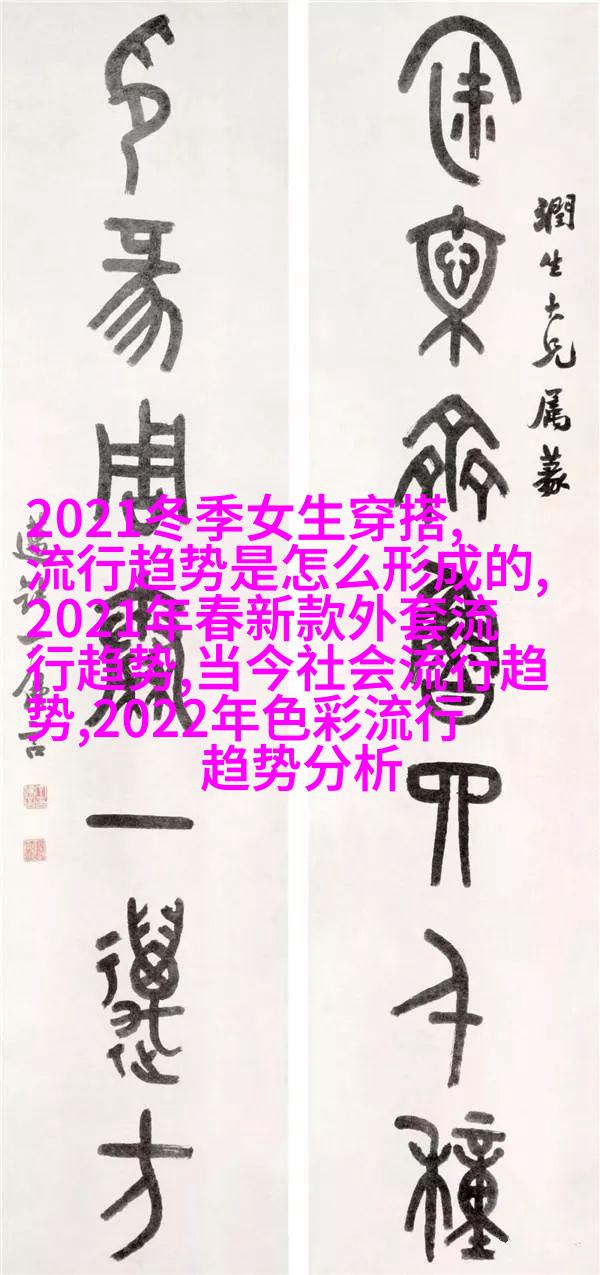 潤生大兄属篆
齊魯四千種
印周一方
2021冬季女生穿搭,
流行趋势是怎么形成的,
2021年春新款外套流
行趋势,当今社会流行趋
势,2022年色彩流行
趋势分析